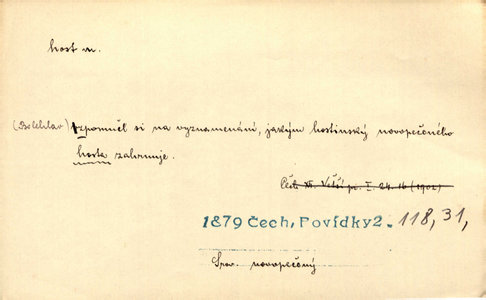 host m.
(Boleslav) vzpomněl si na vyznamenání, jakým hostinský novopečeného
hosta zahrnuje.
Čech XII. Větší pr. I 24.16 (1902)
1879 Čech, Povídky 2. 118, 31,
Srov. novopečený